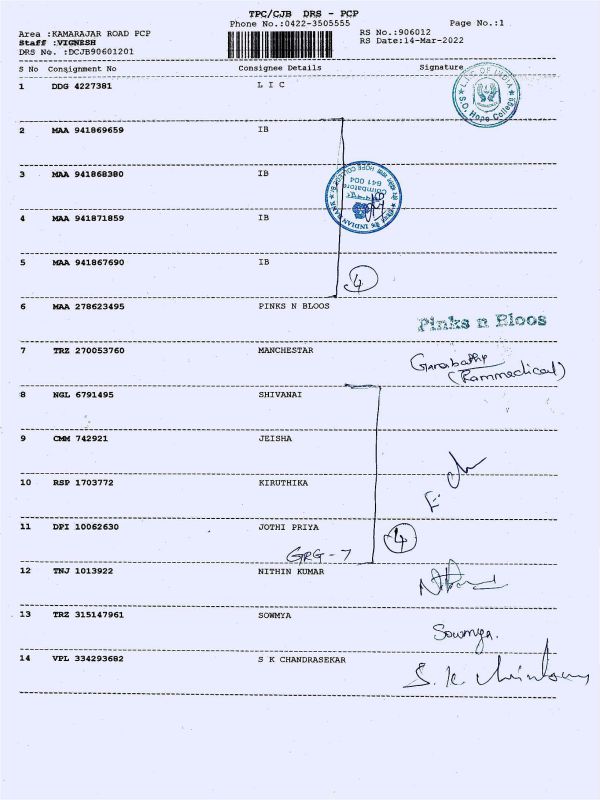 TPC/CJB DRS - PCP
Phone No.:0422-3505555
Page No.:1
Area :KAMARAJAR ROAD PCP
RS No.:906012
Staff :VIGNESH
RS Date:14-Mar-2022
DRS No. :DCJB90601201
S No Consignment No Consignee Details Signature
1 DDG 4227381 L I C
L.I.C. OF INDIA
S.O. Hope College
2 MAA 941869659 IB
3 MAA 941868380 IB
INDIAN BANK
HOPE COLLEGE BR.
Coimbatore
641 004
4 MAA 941871859 IB
5 MAA 941867690 IB
4
6 MAA 278623495 PINKS N BLOOS
Pinks n Bloos
7 TRZ 270053760 MANCHESTAR
Ganabathy
(Rammedical)
8 NGL 6791495 SHIVANAI
9 CMM 742921 JEISHA
10 RSP 1703772 KIRUTHIKA
11 DPI 10062630 JOTHI PRIYA
4
GRG - 7
12 TNJ 1013922 NITHIN KUMAR
13 TRZ 315147961 SOWMYA
Sowmya.
14 VPL 334293682 S K CHANDRASEKAR
S. K.